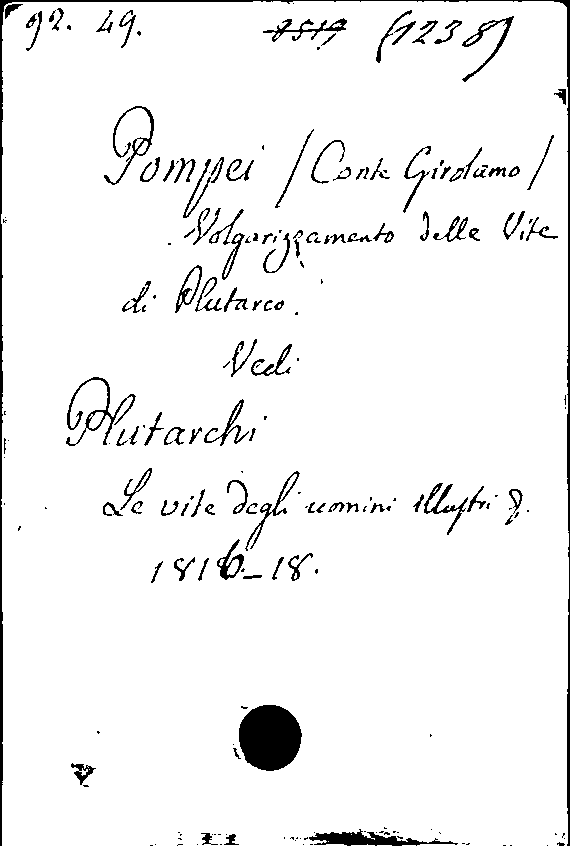 92. 49. 8519 (1238)
Pompei /Conte Girolamo/
Volgarizzamento delle Vite
di Plutarco.
Vedi
Plutarchi
Le vite degli uomini illustri &.
1816-18.